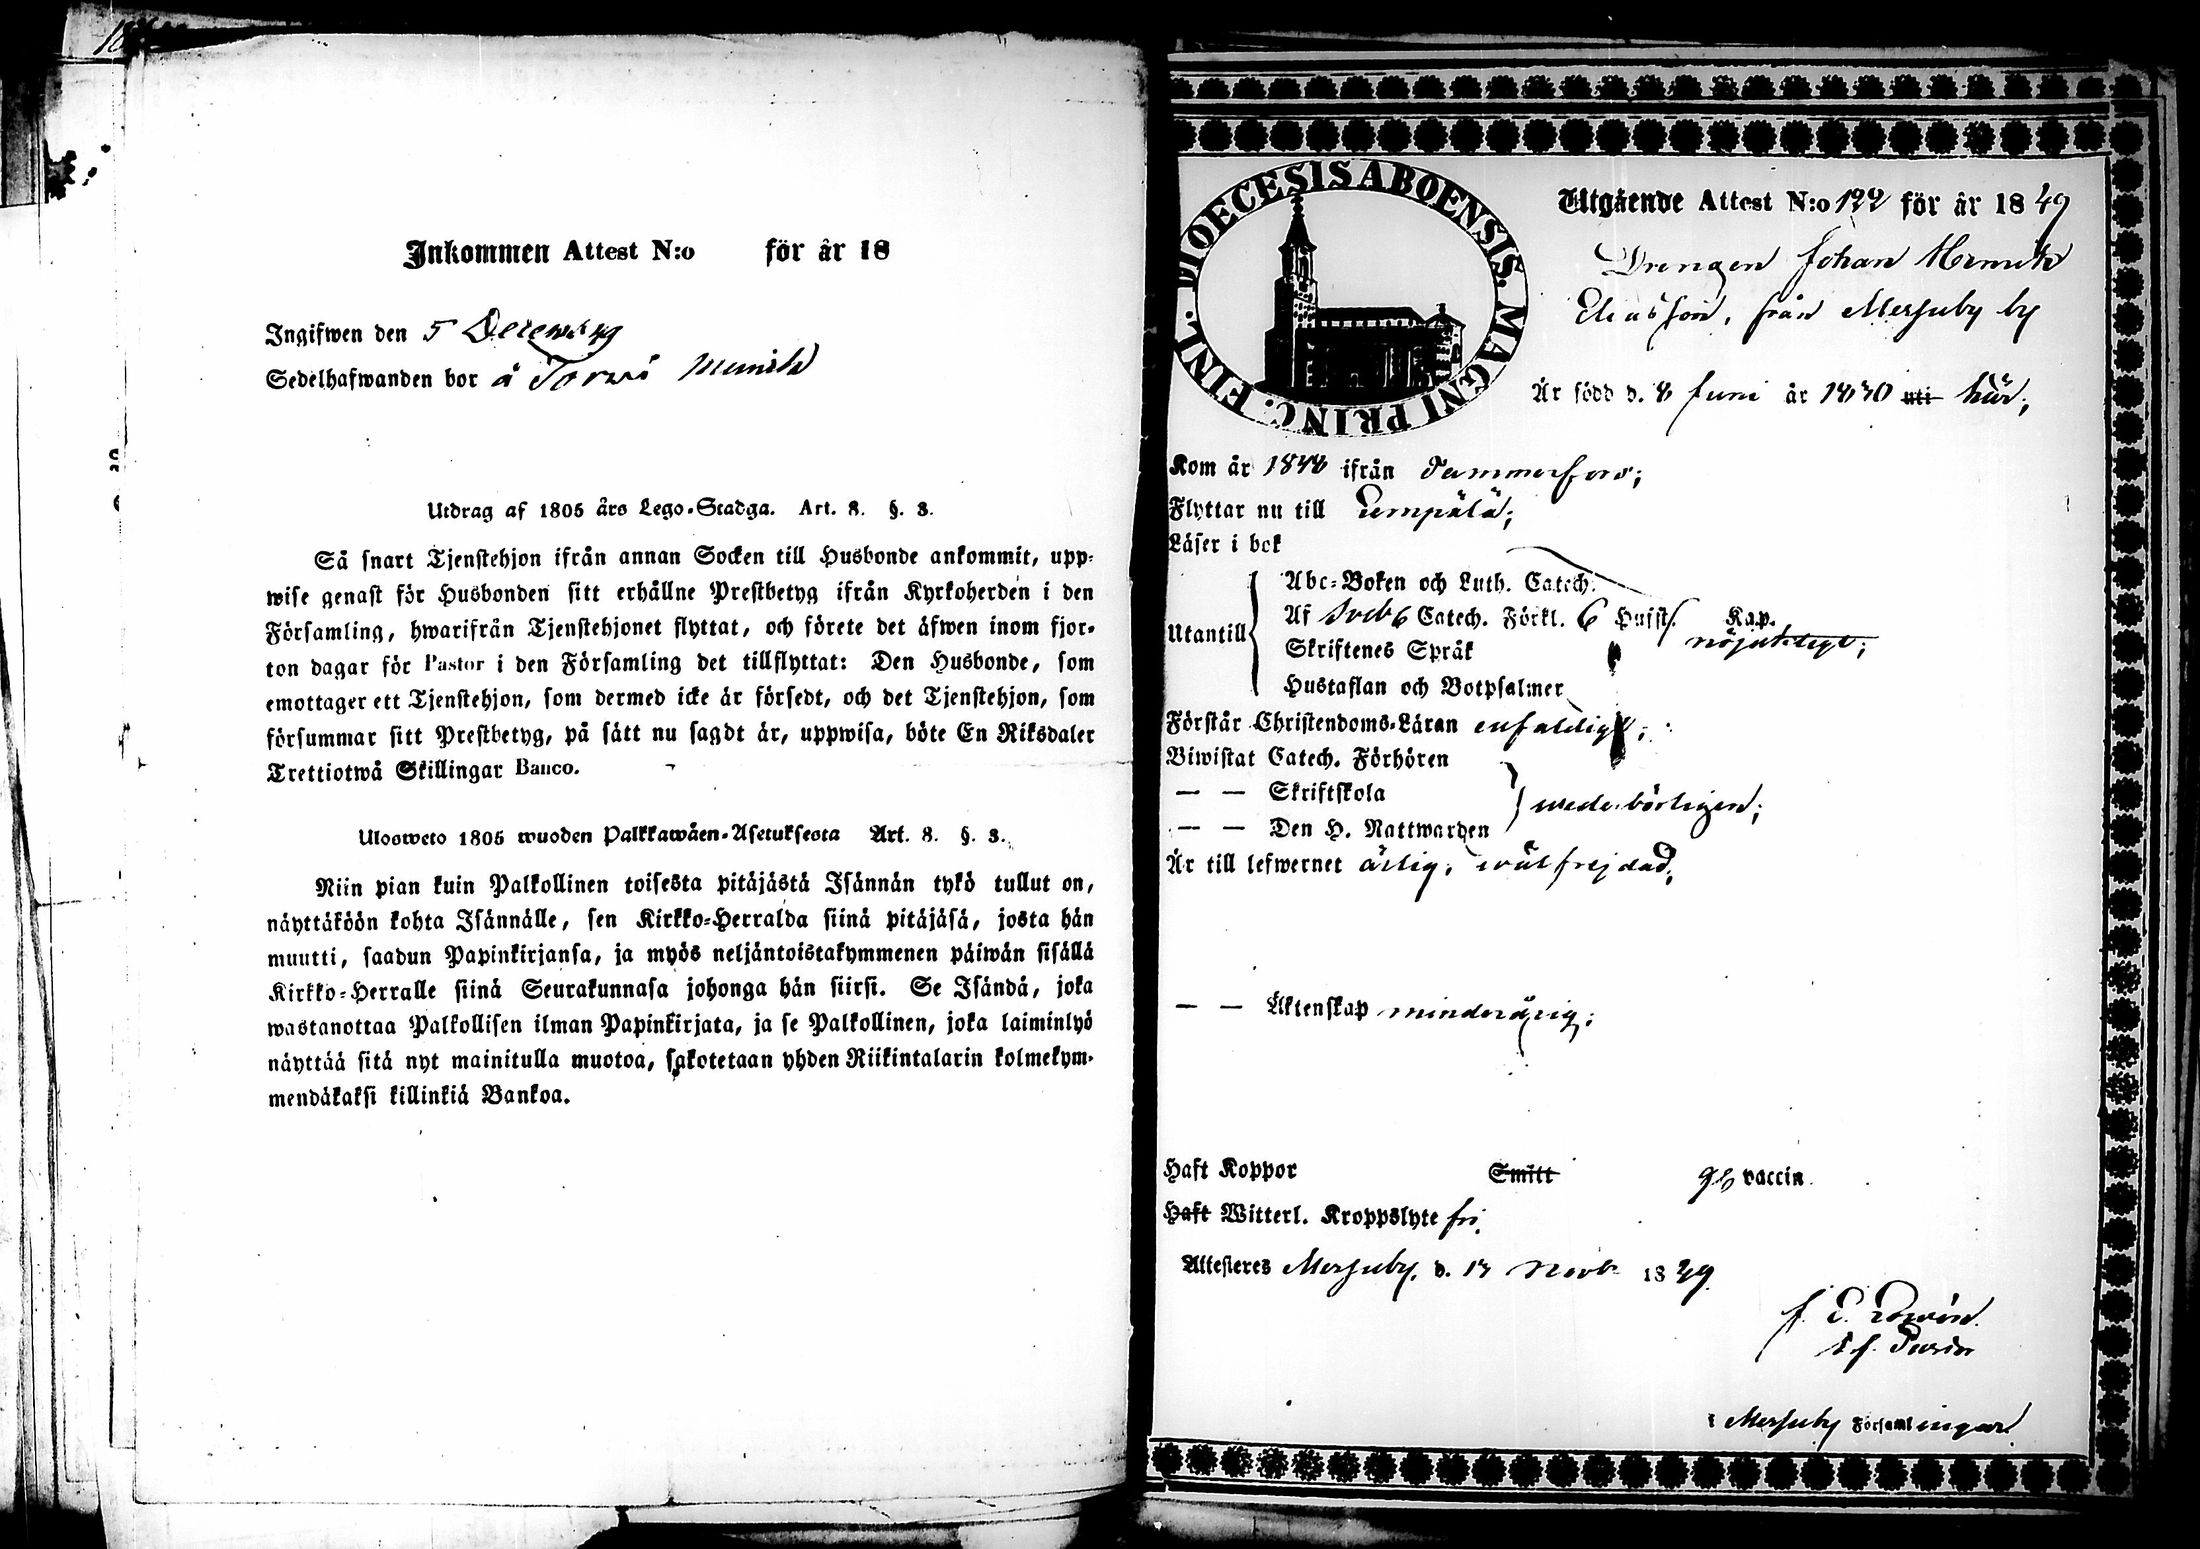 Inkommen Attest N:o för år 18
Ingifwen den 5 Decemb 49
Sedelhafwanden bor å
Utdrag af 1805 års Lego-Stadga. Art. 8. §. 3.
Så snart Tjenstehjon ifrån annan Socken till Husbonde ankommit, upp-
wise genast för Husbonden sitt erhållne Prestbetyg ifrån Kyrkoherden i den
Församling, hwarifrån Tjenstehjonet flyttat, och förete det äfwen inom fjor-
ton dagar för Pastor i den Församling det tillflyttat: Den Husbonde, som
emottager ett Tjenstehjon, som dermed icke är försedt, och det Tjenstehjon, som
försummar sitt Prestbetyg, på sätt nu sagdt är, uppwisa, böte En Riksdaler
Trettiotwå Skillingar Banco.
Ulosweto 1805 wuoden Palkkawäen-Asetuksesta Art. 8. §. 3.
Niin pian kuin Palkollinen toisesta pitäjästä Isännän tykö tullut on,
näyttäköön kohta Isännälle, sen Kirkko-Herralda siinä pitäjäsä, josta hän
muutti, saadun Papinkirjansa, ja myös neljäntoistakymmenen päiwän sisällä
Kirkko-Herralle siinä Seurakunnasa johonga hän siirsi. Se Isändä, joka
wastanottaa Palkollisen ilman Papinkirjata, ja se Palkollinen, joka laiminlyö
näyttää sitä nyt mainitulla muotoa, sakotetaan yhden Riikintalarin kolmekym-
mendäkaksi killinkiä Bankoa.
DIOECESIS ABOENSIS. MAGNI PRINC. FINL.
Utgående Attest N:o 122 för år 1849
Drengen Johan Henrik
Eliasson, från Messuby by
Är född d. 8 Juni år 1830 uti här;
Kom år 1848 ifrån Tammerfors;
Flyttar nu till Lempälä;
Läser i bok
Abc-Boken och Luth. Catech.
Utantill Af Sveb 6 Catech. Förkl. 6 Hufst. Kap. nöjaktigt;
Skriftenes Språk
Hustaflan och Botpsalmer
Förstår Christendoms-Läran enfaldigt;
Biwistat Catech. Förhören
— — Skriftskola wederbörligen;
— — Den H. Nattwarden
Är till lefwernet ärlig, wälfrejdad;
— — Äktenskap minderårig;
Haft Koppor Smitt gb vaccin.
Haft Witterl. Kroppslyte fri.
Attesteres Messuby, d. 13 Novb 1849.
i Messuby Församlingar.